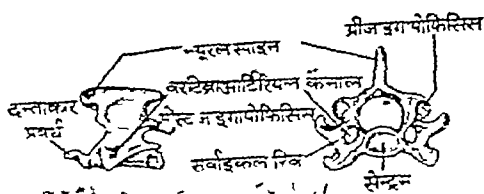 प्रीजाइगापोफिसिस
न्यूरल स्पाइन
वरटिब्राआर्टिरियल कैनाल
दन्ताकार
प्रवर्ध
पोस्टजाइगापोफिसिस
सर्वाइकल रिब
सेन्ट्रम